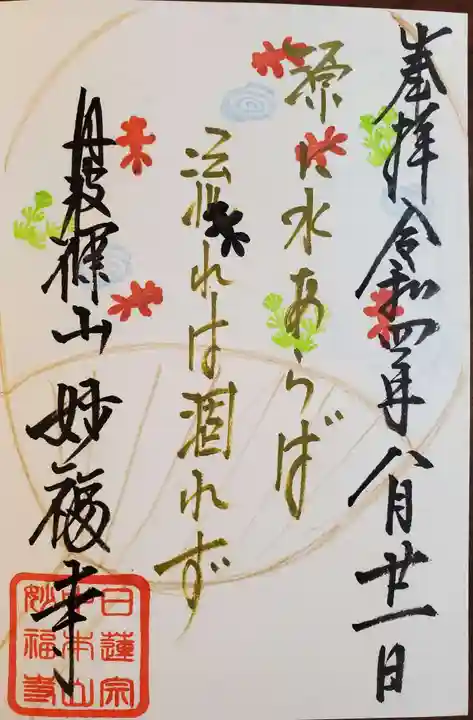 奉拝 令和四年八月廿一日
源に水あらば
流れは涸れず
丹波篠山 妙福寺
日蓮宗
中本山
妙福寺